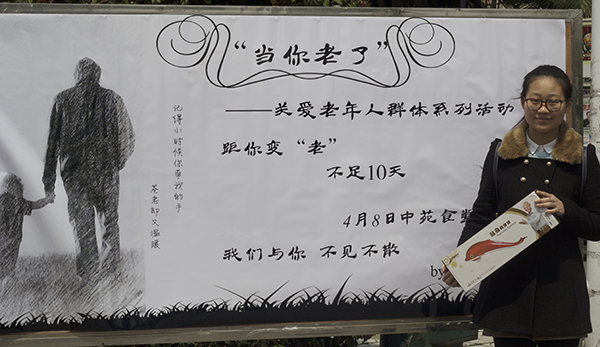 “当你老了”
——关爱老年人群体系列活动
距你变“老”
不足10天
4月8日中苑食堂
我们与你 不见不散
by
记得小时候你牵我的手